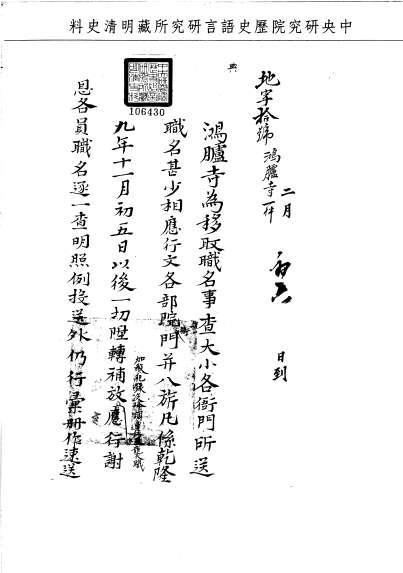 中央研究院歷史語言研究所藏明清史料
106430
典
地字拾號 鴻臚寺一件
二月
日到
鴻臚寺為移取職名事查大小各衙門所送
職名甚少相應行文各部院衙門并八旂凡係乾隆
九年十一月初五日以後一切陞轉補放應行謝
恩各員職名逐一查明照例投送外仍行彙册作速送